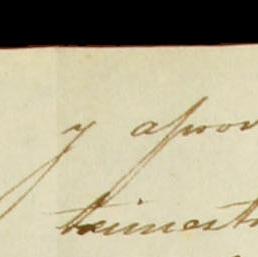 y aprov
trimestr